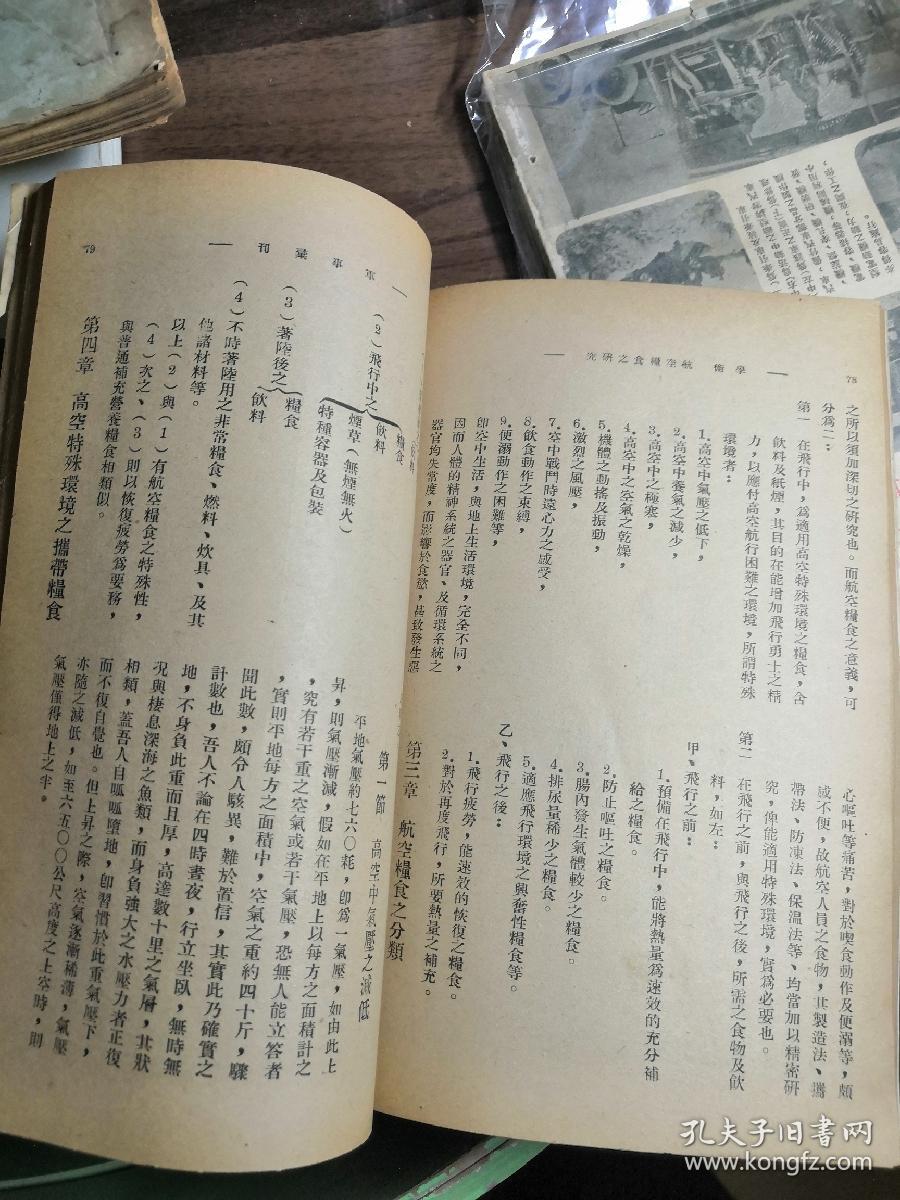 78
學術 航空糧食之研究
之所以須加深切之研究也。而航空糧食之意義，可
分爲二：
第一 在飛行中，爲適用高空特殊環境之糧食，含
飲料及紙煙，其目的在能增加飛行勇士之精
力，以應付高空航行困難之環境，所謂特殊
環境者：
1.高空中氣壓之低下，
2.高空中養氣之減少，
3.高空中之極寒，
4.高空中之空氣之乾燥，
5.機體之動搖及振動，
6.激烈之風壓，
7.空中戰鬥時遠心力之感受，
8.飲食動作之束縛，
9.便溺動作之困難等，
卽空中生活，與地上生活環境，完全不同，
因而人體的精神系統之器官、及循環系統之
器官均失常度，而影響於食慾，甚致發生惡
心嘔吐等痛苦，對於喫食動作及便溺等，頗
感不便，故航空人員之食物，其製造法、攜
帶法、防凍法、保溫法等、均當加以精密研
究，俾能適用特殊環境，實爲必要也。
第二 在飛行之前，與飛行之後，所需之食物及飲
料，如左：
甲、飛行之前：
1.預備在飛行中，能將熱量爲速效的充分補
給之糧食。
2.防止嘔吐之糧食。
3.腸內發生氣體較少之糧食。
4.排尿量稀少之糧食。
5.適應飛行環境之興奮性糧食等。
乙、飛行之後：
1.飛行疲勞，能速效的恢復之糧食。
2.對於再度飛行，所要熱量之補充。
第三章 航空糧食之分類
軍事彙刊
79
（2）飛行中之
糧食
飲料
煙草（無煙無火）
特種容器及包裝
（3）著陸後之
糧食
飲料
（4）不時著陸用之非常糧食、燃料、炊具、及其
他諸材料等。
以上（2）與（1）有航空糧食之特殊性，
（4）次之、（3）則以恢復疲勞爲要務，
與普通補充營養糧食相類似。
第四章 高空特殊環境之攜帶糧食
第一節 高空中氣壓之減低
平地氣壓約七六〇耗，卽爲一氣壓，如由此上
昇，則氣壓漸減，假如在平地上以每方之面積計之
，究有若干重之空氣或若干氣壓，恐無人能立答者
，實則平地每方之面積中，空氣之重約四十斤，驟
聞此數，頗令人駭異，難於置信，其實此乃確實之
計數也，吾人不論在四時晝夜，行立坐臥，無時無
地，不身負此重而且厚，高達數十里之氣層，其狀
况與棲息深海之魚類，而身負強大之水壓力者正復
相類，蓋吾人自呱呱墮地，卽習慣於此重氣壓下，
而不復自覺也。但上昇之際，空氣逐漸稀薄，氣壓
亦隨之減低，如至六五〇〇公尺高度之上空時，則
氣壓僅得地上之半。
孔夫子旧书网
www.kongfz.com